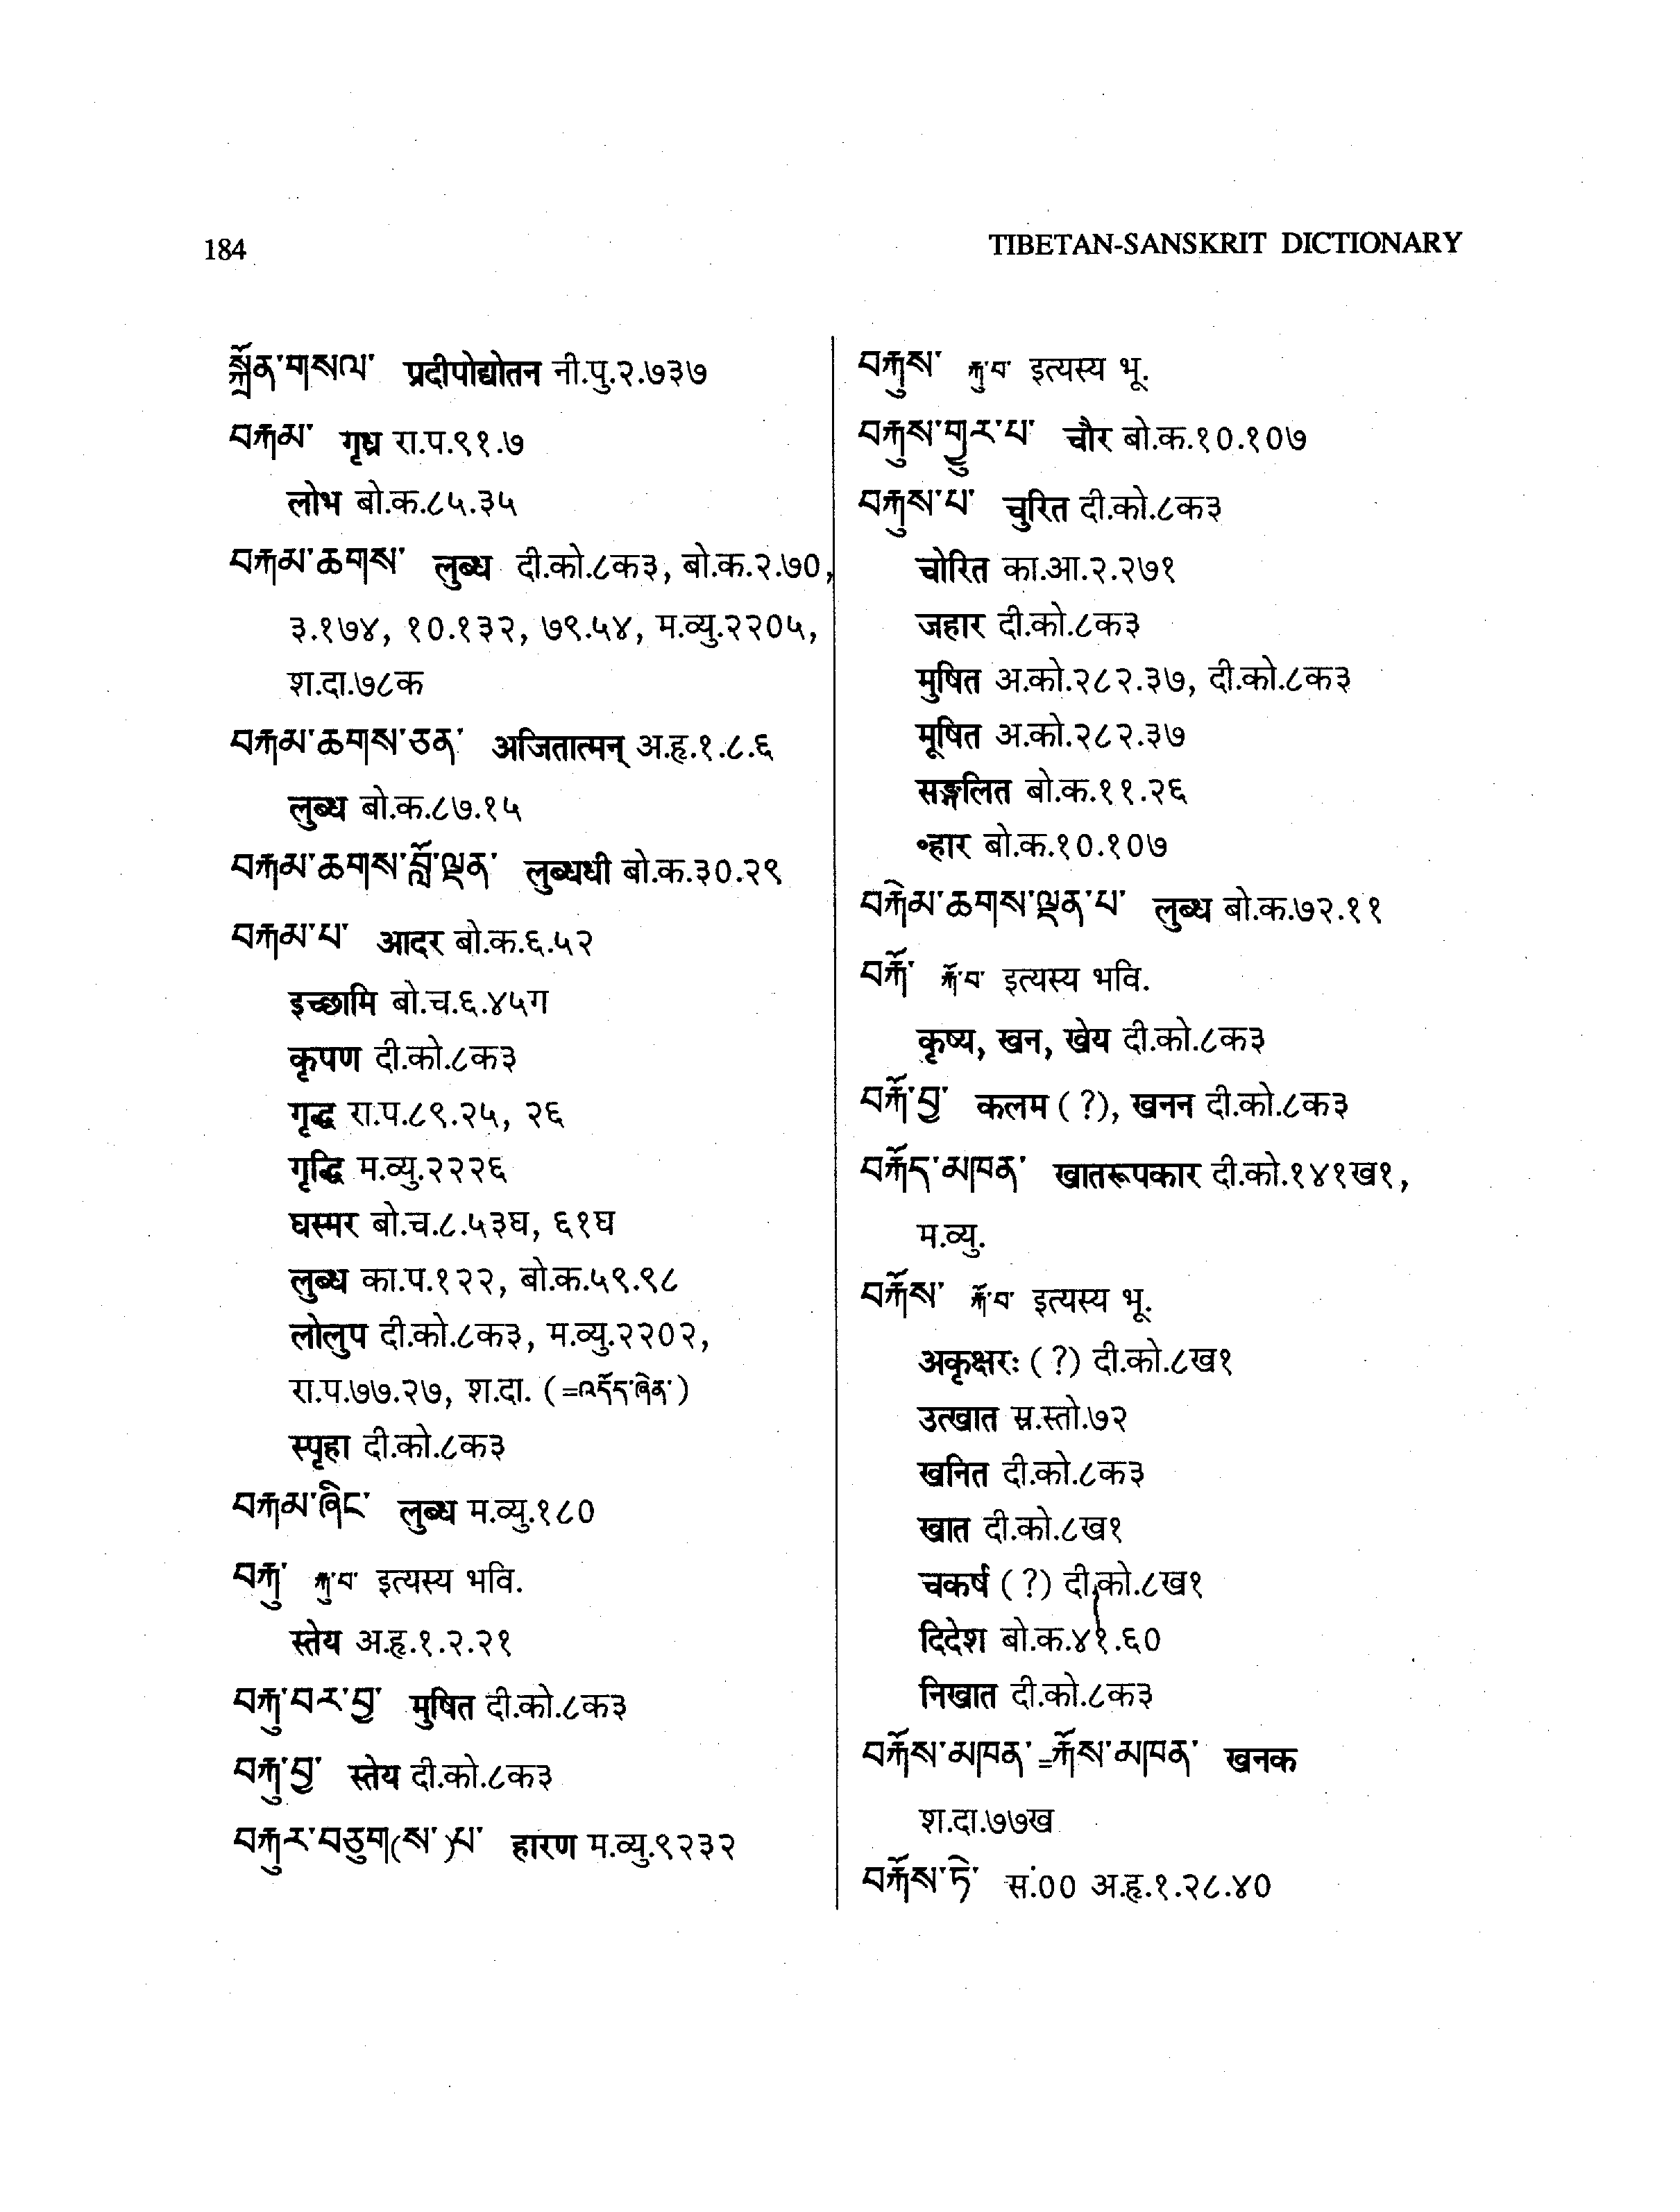 184
TIBETAN-SANSKRIT DICTIONARY
སྒྲོན་གསལ་ प्रदीपोद्योतन नी.पु.२.७३७
བརྐམ་ गृध्र रा.प.९१.७
लोभ बो.क.८५.३५
བརྐམ་ཆགས་ लुब्ध दी.को.८क३, बो.क.२.७०,
३.१७४, १०.१३२, ७९.५४, म.व्यु.२२०५,
श.दा.७८क
བརྐམ་ཆགས་ཅན་ अजितात्मन् अ.हृ.१.८.६
लुब्ध बो.क.८७.१५
བརྐམ་ཆགས་བློ་ལྡན་ लुब्धधी बो.क.३०.२९
བརྐམ་པ་ आदर बो.क.६.५२
इच्छामि बो.च.६.४५ग
कृपण दी.को.८क३
गृद्ध रा.प.८९.२५, २६
गृद्धि म.व्यु.२२२६
घस्मर बो.च.८.५३घ, ६१घ
लुब्ध का.प.१२२, बो.क.५९.९८
लोलुप दी.को.८क३, म.व्यु.२२०२,
रा.प.७७.२७, श.दा. (=འདོད་ཞེན་)
स्पृहा दी.को.८क३
བརྐམ་ཞིང་ लुब्ध म.व्यु.१८०
བརྐུ་ རྐུ་བ་ इत्यस्य भवि.
स्तेय अ.हृ.१.२.२१
བརྐུ་བར་བྱ་ मुषित दी.को.८क३
བརྐུ་བྱ་ स्तेय दी.को.८क३
བརྐུར་བཅུག(ས་)པ་ हारण म.व्यु.९२३२
བརྐུས་ རྐུ་བ་ इत्यस्य भू.
བརྐུས་གྱུར་པ་ चौर बो.क.१०.१०७
བརྐུས་པ་ चुरित दी.को.८क३
चोरित का.आ.२.२७१
जहार दी.को.८क३
मुषित अ.को.२८२.३७, दी.को.८क३
मूषित अ.को.२८२.३७
सङ्गलित बो.क.११.२६
॰हार बो.क.१०.१०७
བརྐེམ་ཆགས་ལྡན་པ་ लुब्ध बो.क.७२.११
བརྐོ་ རྐོ་བ་ इत्यस्य भवि.
कृष्य, खन, खेय दी.को.८क३
བརྐོ་བྱ་ कलम (?), खनन दी.को.८क३
བརྐོད་མཁན་ खातरूपकार दी.को.१४१ख१,
म.व्यु.
བརྐོས་ རྐོ་བ་ इत्यस्य भू.
अकृक्षरः (?) दी.को.८ख१
उत्खात स्र.स्तो.७२
खनित दी.को.८क३
खात दी.को.८ख१
चकर्ष (?) दी.को.८ख१
दिदेश बो.क.४१.६०
निखात दी.को.८क३
བརྐོས་མཁན་=རྐོས་མཁན་ खनक
श.दा.७७ख
བརྐོས་ཏེ་ सं.०० अ.हृ.१.२८.४०